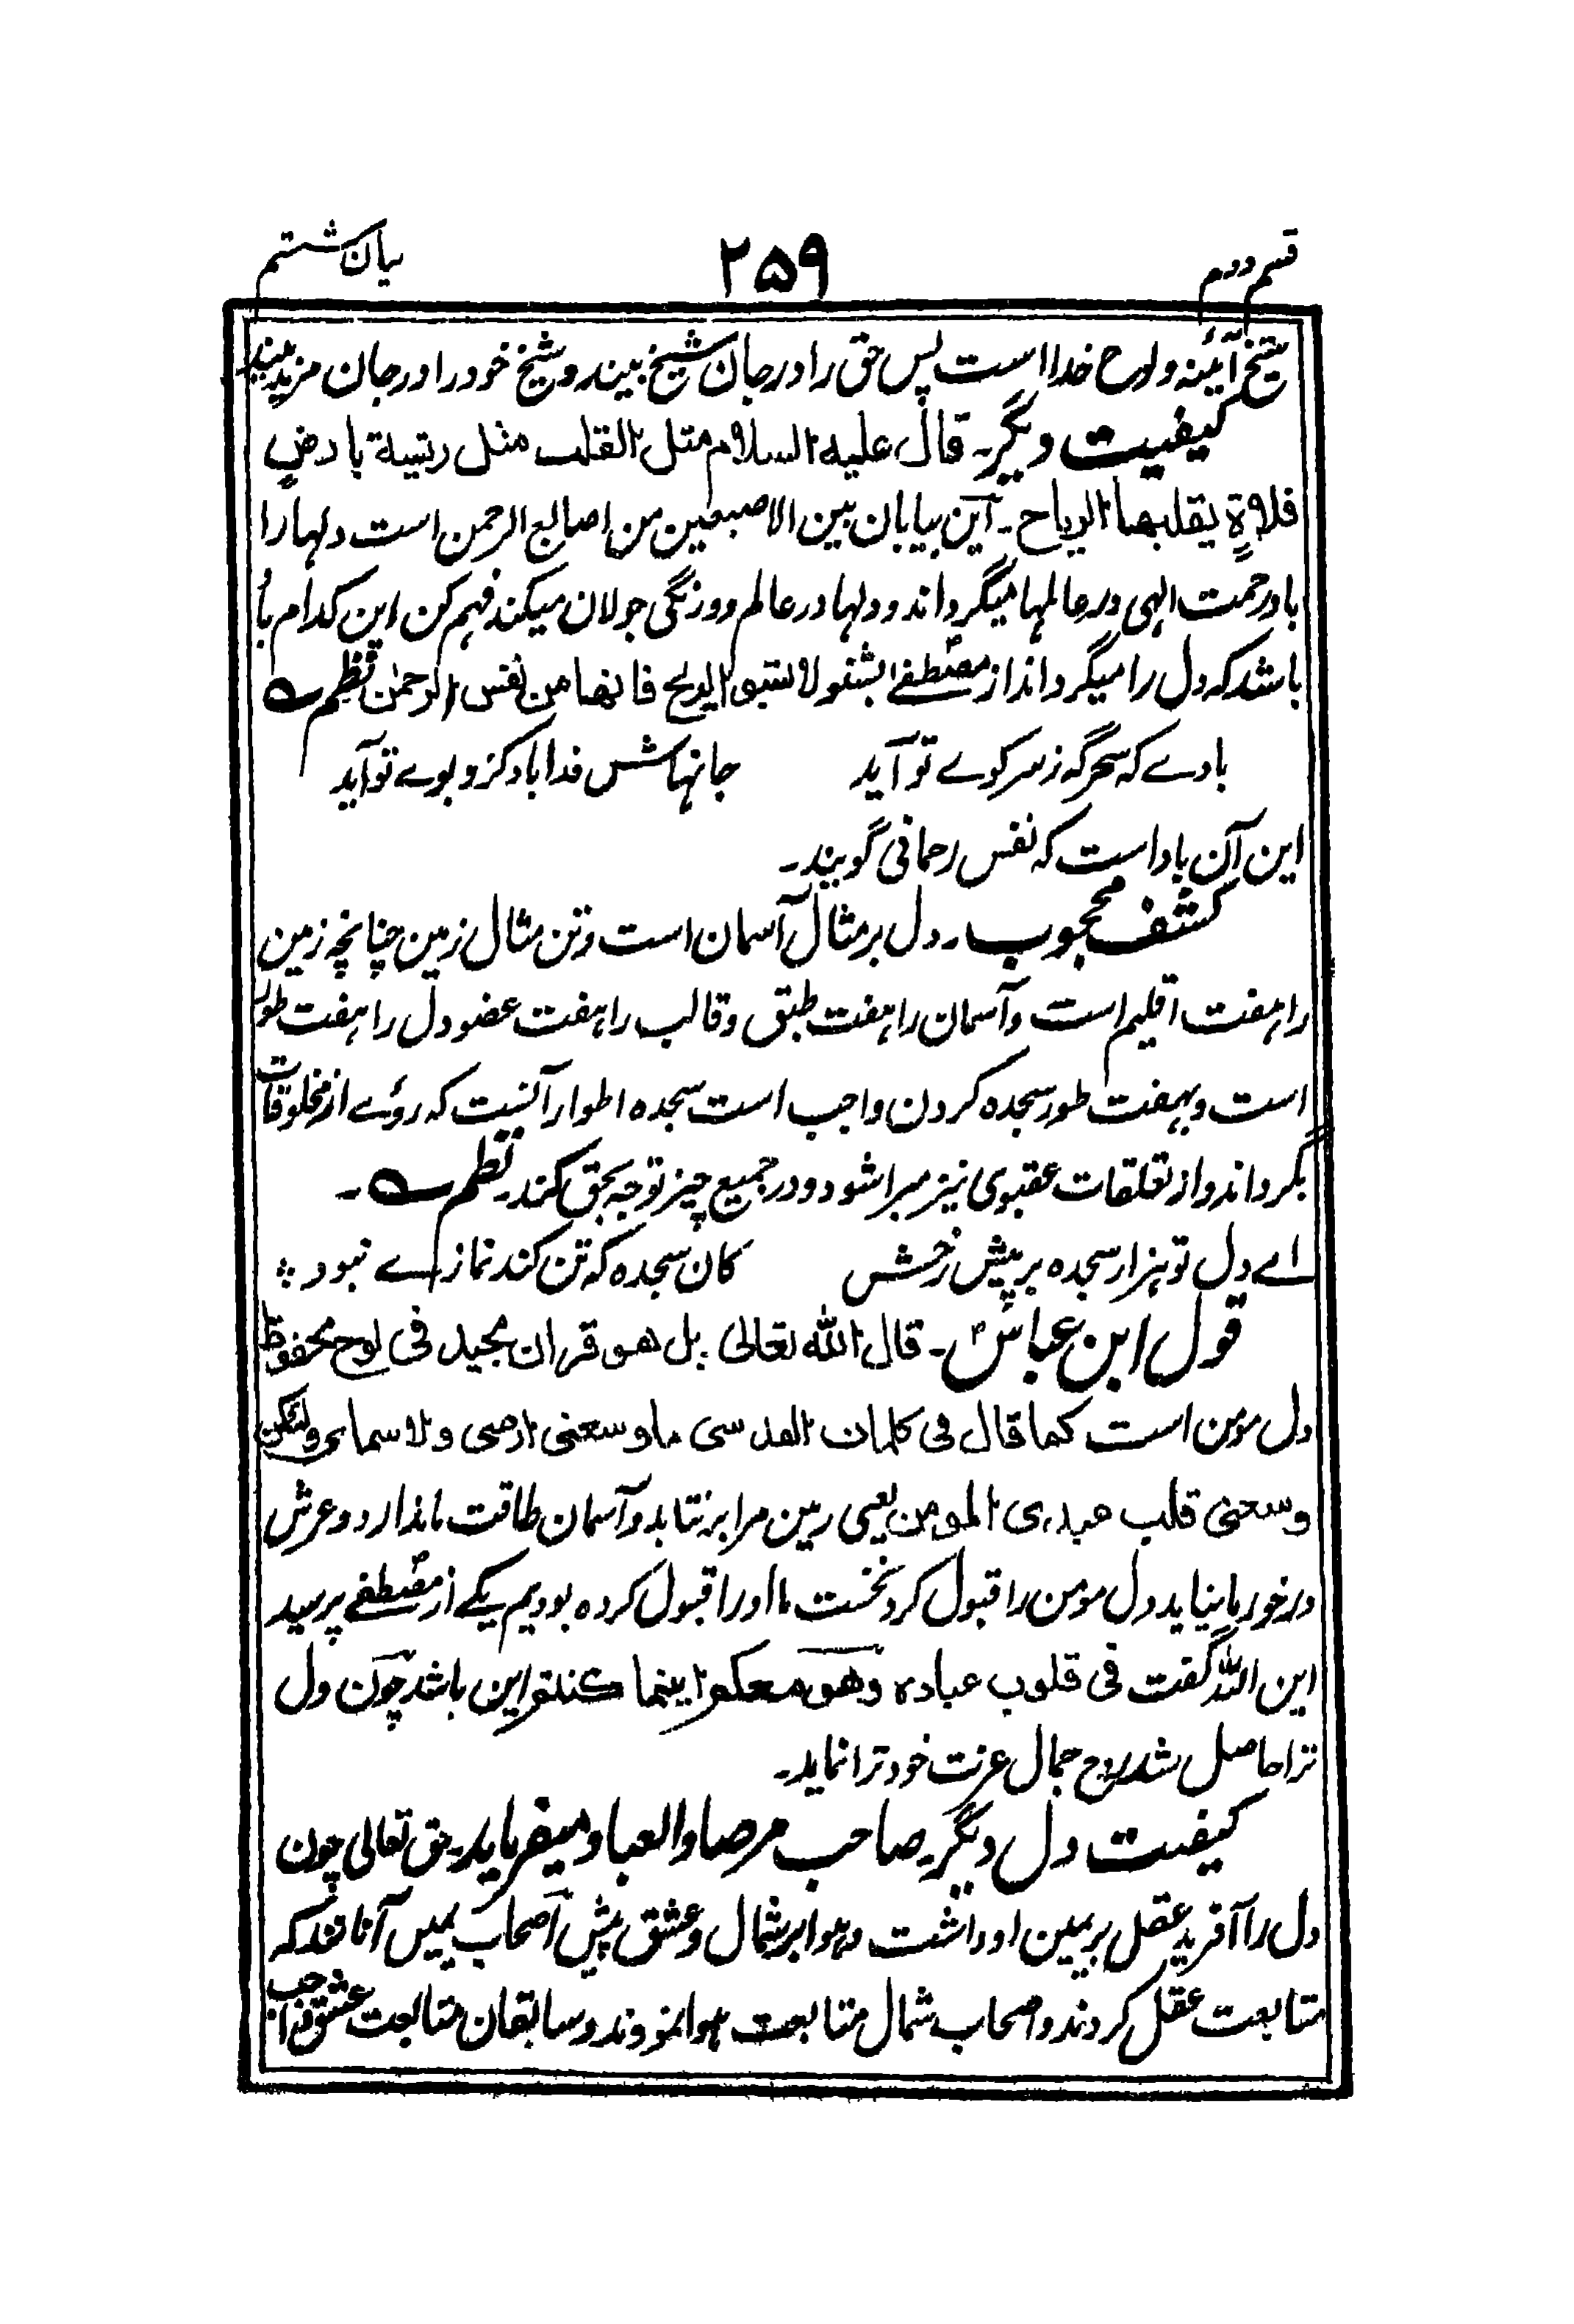 قسم دوم ۲۵۹ بیان ششتم
شیخ آئینه ولوح خدا است پس حق را در جان شیخ بیند و شیخ خود را در جان مزید بیند
کیفیت دیگر۔ قال علیه السلام مثل القلب مثل ریشة بارض
فلاة یقلبها الریاح۔ این بیابان بین الاصبعین من اصابع الرحمن است دلها را
باد رحمت الهی در عالمها میگرداند و دلها در عالم دو رنگی جولان میکند فهم کن این کدام باد
باشد که دل را میگرداند از مصطفے بشنو لا تسبوا الریح فانها من نفس الرحمن نظم
بادے که سحرگه ز سر کوے تو آید جانهاش فدا باد کزو بوے تو آید
این آن باد است که نفس رحمانی گویند۔
کشف محجوب۔ دل بر مثال آسمان است و تن مثال زمین چنانچه زمین
را هفت اقلیم است و آسمان را هفت طبق و قالب را هفت عضو دل را هفت طور
است و بهفت طور سجده کردن واجب است سجده اطوار آنست که روے از مخلوقات
بگرداند و از تعلقات عقبوی نیز مبرا شود و در جمیع چیز توجه بحق کند۔ نظم ۔
اے دل تو هزار سجده بر پیش رخش کان سجده که تن کند نمازے نبود
قول ابن عباسؓ۔ قال الله تعالی بل هو قران مجید فی لوح محفوظ
دل مومن است کما قال فی کلمات القدسی ماوسعنی ارضی ولا سمائی ولکن
وسعنی قلب عبدی المومن یعنی زمین مرا برنتابد و آسمان طاقت ما ندارد و عرش
در خور ما نیاید دل مومن را قبول کرد نخست ما او را قبول کرده بودیم یکے از مصطفے پرسید
این الله گفت فی قلوب عباده وهو معکم اینما کنتم این باشد چون دل
ترا حاصل شد روح جمال عزت خود ترا نماید۔
کیفیت دل دیگر۔ صاحب مرصاد العباد میفرماید۔ حق تعالی چون
دل را آفرید عقل بر یمین او داشت و هوا بر شمال و عشق پیش اصحاب یمین آنانند که
متابعت عقل کردند و اصحاب شمال متابعت هوا نمودند و سابقان متابعت عشق